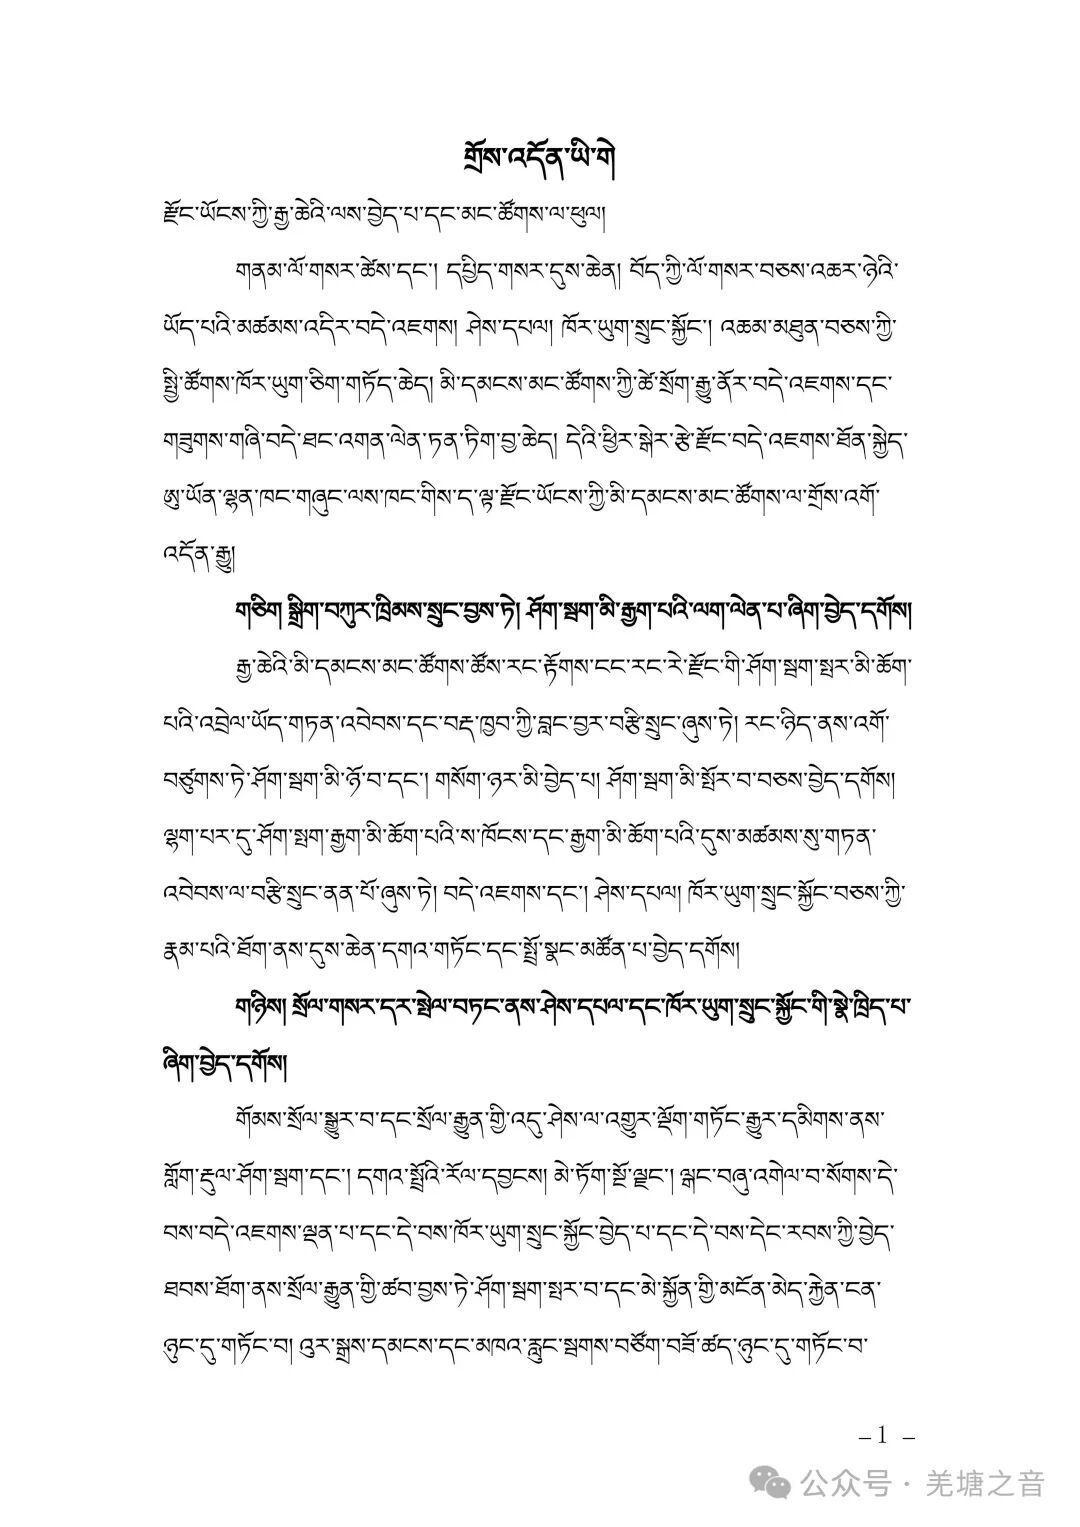 གྲོས་འདོན་ཡི་གེ
རྫོང་ཡོངས་ཀྱི་རྒྱ་ཆེའི་ལས་བྱེད་པ་དང་མང་ཚོགས་ལ་ཕུལ།
གནམ་ལོ་གསར་ཚེས་དང་། དཔྱིད་གསར་དུས་ཆེན། བོད་ཀྱི་ལོ་གསར་བཅས་འཆར་ཉེའི་
ཡོད་པའི་མཚམས་འདིར་བདེ་འཇགས། ཤེས་དཔལ། ཁོར་ཡུག་སྲུང་སྐྱོང་། འཆམ་མཐུན་བཅས་ཀྱི་
སྤྱི་ཚོགས་ཁོར་ཡུག་ཅིག་གཏོད་ཆེད། མི་དམངས་མང་ཚོགས་ཀྱི་ཚེ་སྲོག་རྒྱུ་ནོར་བདེ་འཇགས་དང་
གཟུགས་གཞི་བདེ་ཐང་འགན་ལེན་ཏན་ཏིག་བྱ་ཆེད། དེའི་ཕྱིར་སྒེར་རྩེ་རྫོང་བདེ་འཇགས་ཐོན་སྐྱེད་
ཨུ་ཡོན་ལྷན་ཁང་གཞུང་ལས་ཁང་གིས་ད་ལྟ་རྫོང་ཡོངས་ཀྱི་མི་དམངས་མང་ཚོགས་ལ་གྲོས་འགོ་
འདོན་རྒྱུ།
གཅིག སྒྲིག་བཀུར་ཁྲིམས་སྲུང་བྱས་ཏེ། ཤོག་སྦག་མི་རྒྱག་པའི་ལག་ལེན་པ་ཞིག་བྱེད་དགོས།
རྒྱ་ཆེའི་མི་དམངས་མང་ཚོགས་ཚོས་རང་རྟོགས་ངང་རང་རེ་རྫོང་གི་ཤོག་སྦག་སྤར་མི་ཆོག་
པའི་འབྲེལ་ཡོད་གཏན་འབེབས་དང་བརྡ་ཁྱབ་ཀྱི་བླང་བྱར་བརྩི་སྲུང་ཞུས་ཏེ། རང་ཉིད་ནས་འགོ་
བཙུགས་ཏེ་ཤོག་སྦག་མི་ཉོ་བ་དང་། གསོག་ཉར་མི་བྱེད་པ། ཤོག་སྦག་མི་སྤོར་བ་བཅས་བྱེད་དགོས།
ལྷག་པར་དུ་ཤོག་སྤག་རྒྱག་མི་ཆོག་པའི་ས་ཁོངས་དང་རྒྱག་མི་ཆོག་པའི་དུས་མཚམས་སུ་གཏན་
འབེབས་ལ་བརྩི་སྲུང་ནན་པོ་ཞུས་ཏེ། བདེ་འཇགས་དང་། ཤེས་དཔལ། ཁོར་ཡུག་སྲུང་སྐྱོང་བཅས་ཀྱི་
རྣམ་པའི་ཐོག་ནས་དུས་ཆེན་དགའ་གཏོང་དང་སྤྲོ་སྣང་མཚོན་པ་བྱེད་དགོས།
གཉིས། སྲོལ་གསར་དར་སྤེལ་བཏང་ནས་ཤེས་དཔལ་དང་ཁོར་ཡུག་སྲུང་སྐྱོང་གི་སྣེ་ཁྲིད་པ་
ཞིག་བྱེད་དགོས།
གོམས་སྲོལ་སྒྱུར་བ་དང་སྲོལ་རྒྱུན་གྱི་འདུ་ཤེས་ལ་འགྱུར་ལྡོག་གཏོང་རྒྱུར་དམིགས་ནས་
གློག་རྡུལ་ཤོག་སྦག་དང་། དགའ་སྤྲོའི་རོལ་དབྱངས། མེ་ཏོག་སྔོ་ལྗང་། ལྒང་བཞུ་འགེལ་བ་སོགས་དེ་
བས་བདེ་འཇགས་ལྡན་པ་དང་དེ་བས་ཁོར་ཡུག་སྲུང་སྐྱོང་བྱེད་པ་དང་དེ་བས་དེང་རབས་ཀྱི་བྱེད་
ཐབས་ཐོག་ནས་སྲོལ་རྒྱུན་གྱི་ཚབ་བྱས་ཏེ་ཤོག་སྦག་སྤར་བ་དང་མེ་སྐྱོན་གྱི་མངོན་མེད་རྐྱེན་ངན་
ཉུང་དུ་གཏོང་བ། འུར་སྒྲས་དམངས་དང་མཁའ་རླུང་སྦགས་བཙོག་བཟོ་ཚད་ཉུང་དུ་གཏོང་བ་
– 1 –
公众号 · 羌塘之音